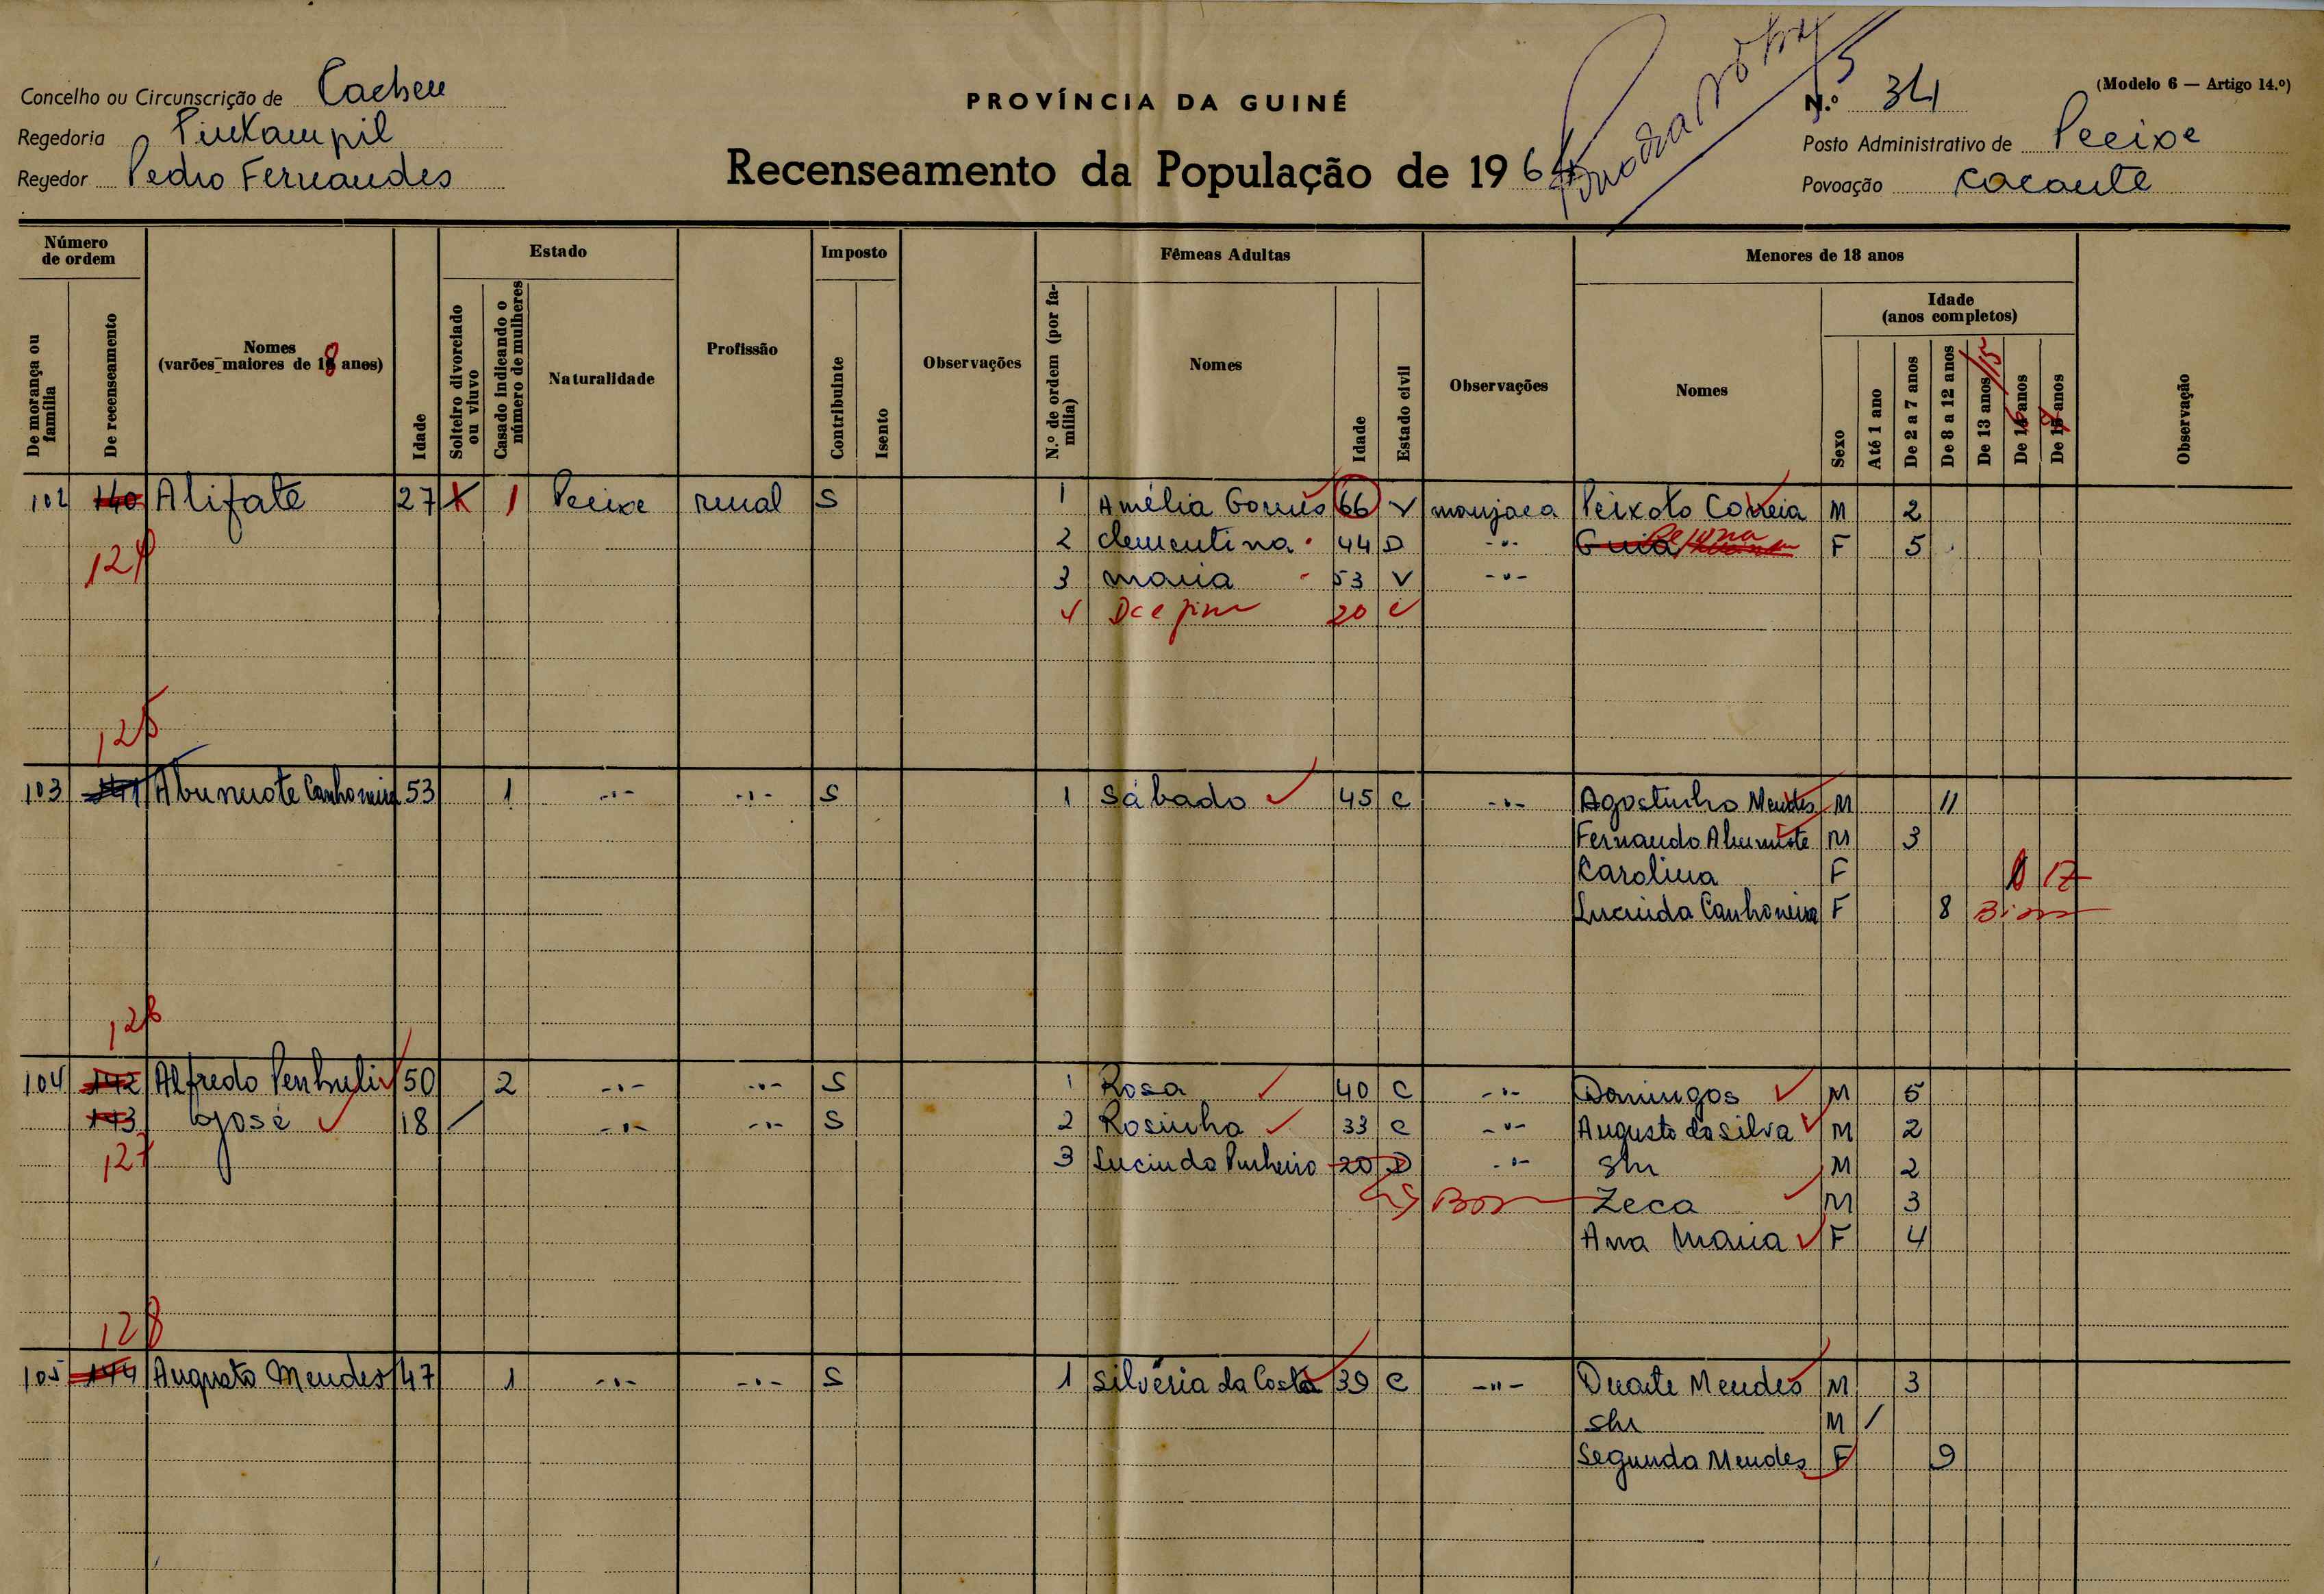 Concelho ou Circunscrição de Cacheu
Regedoria
Regedor Pedro Fernandes
PROVÍNCIA DA GUINÉ
Recenseamento da População de 196
(Modelo 6 — Artigo 14.º)
N.º 34
Posto Administrativo de Pecixe
Povoação Cacante
Número de ordem
De morança ou família
De recenseamento
Nomes (varões maiores de 18 anos)
Idade
Estado
Solteiro divorciado ou viuvo
Casado indicando o número de mulheres
Naturalidade
Profissão
Imposto
Contribuinte
Isento
Observações
Fêmeas Adultas
N.º de ordem (por família)
Nomes
Idade
Estado civil
Observações
Menores de 18 anos
Nomes
Sexo
Idade (anos completos)
Até 1 ano
De 2 a 7 anos
De 8 a 12 anos
De 13 anos /15
De 16 anos
De 17 anos
Observação
102 140 Alifate 27 X 1 Pecixe rural S 1 Amélia Gomes 66 V manjaca Peixoto Correia M 2
124 2 Clementina 44 D -"- F 5
3 maria 53 V -"-
4 20 C
125
103 141 53 1 -"- -"- S 1 Sábado 45 C -"- Agostinho Mendes M 11
Fernando M 3
Carolina F 17
Lucinda Canhoneira F 8
126
104 142 Alfredo 50 2 -"- -"- S 1 Rosa 40 C -"- Domingos M 5
143 José 18 / -"- -"- S 2 Rosinha 33 C -"- Augusto da Silva M 2
127 3 Lucinda 20 D -"- S/n M 2
Zeca M 3
Ana Maria F 4
128
105 144 Augusto Mendes 47 1 -"- -"- S 1 Silvéria da Costa 39 C -"- Duarte Mendes M 3
S/n M /
Segunda Mendes F 9